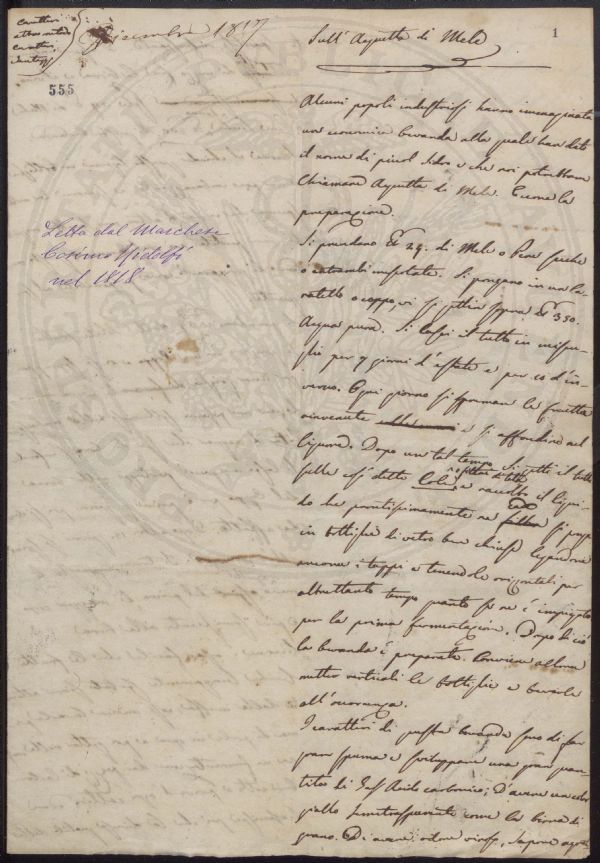 Dicembre 1817
Sull' Acquetta di Mele
1
555
Letta dal Marchese
Cosimo Ridolfi
nel 1818
Alcuni popoli industriosi hanno immaginata
una economica bevanda alla quale han dato
il nome di picciol Sidro e che noi potrebbemo
Chiamare Acquetta di Mele. Eccone la
preparazione.
Si prendono 29. di Mele o Pere secche
o ambi mescolate. Si pongano in un ca-
ratello o coppo, vi si getta sopra 350.
Acqua pura. Si lasci il tutto in
per 7 giorni d'estate e per 10 d'in-
verno. Ogni giorno si la frutta
rinvenuta e si affondano nel
liquore. Dopo un tal tempo si getti il tutto
e raccolto il liqui-
do che prontissimamente ne si ponga
in bottiglie di vetro ben chiuse legandone
ancora i tappi e tenendole orizontali per
altrettanto tempo quanto se ne è impiegato
per la prima fermentazione. Dopo di ciò
la bevanda è preparata. Conviene allora
metter verticali le bottiglie e berle
all'occorrenza.
I caratteri di questa bevanda sono di far
gran spuma e sviluppare una gran quan-
tità di Gas Acido carbonico; D'avere un color
giallo semitrasparente come la birra di
grano. Di avere odore vinoso, sapore